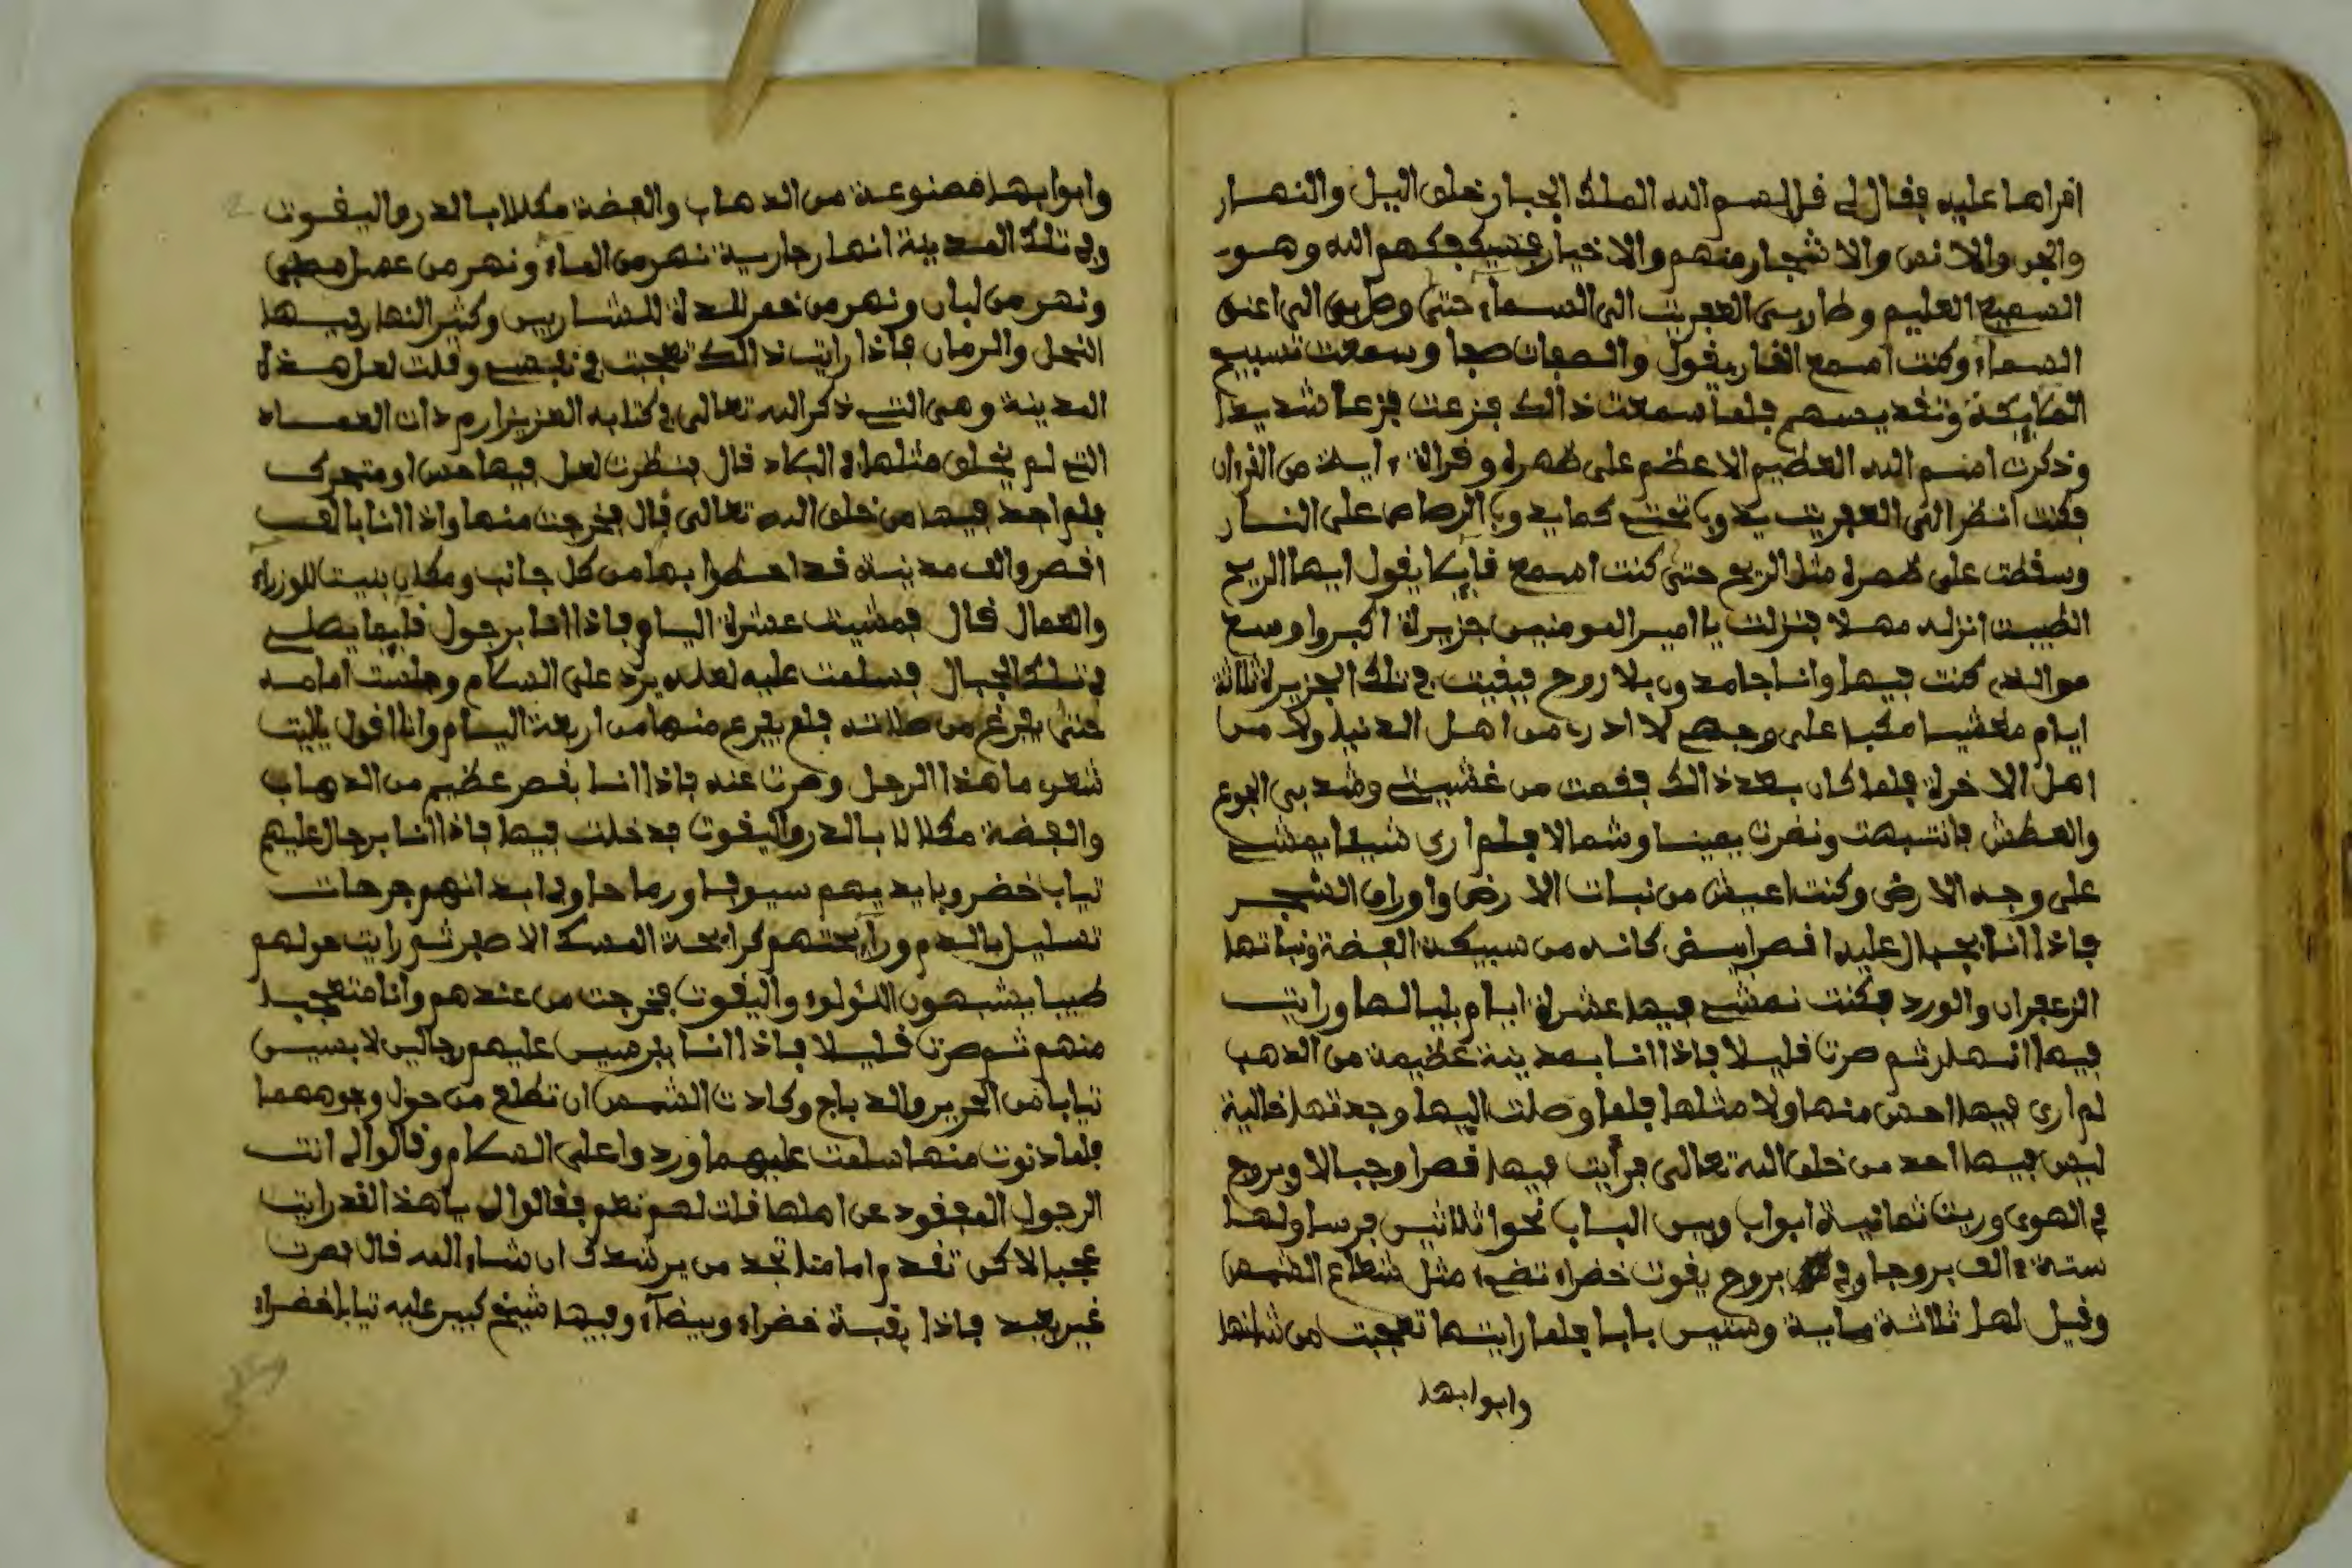 افراها عليه فقال لي قل بسم الله الملك الجبار خلق اليل والنهار
والجن والانس والاشجار منهم والاخيار فسيكفيكهم الله وهو
السميع العليم وطار بي العفريت الى السماء حتى وصل بي الى اعنق
السماء وكنت اسمع القار يقول والصفات صفا وسمعت تسبيح
الملايكة وتقديسهم فلما سمعت ذالك فزعت فزعا شديدا
وذكرت اسم الله العظيم الاعظم على ظهره وقراة ءاية من القرءان
فكنت انظر الى العفريت يذوب تحتي كما يذوب الرصاص على النار
وسقطت على ظهره مثل الريح حتى كنت اسمع قايلا يقول ايها الريح
الطيبت انزله مهلا فنزلت يا امير المومنين جزيرة اكبر واوسع
من الذي كنت فيها وانا جامد ون بلا روح فبقيت في تلك الجزيرة ثلاثة
ايام مغشيا مكبا على وجهي لا ادري من اهل الدنيا ولا من
اهل الاخرة فلما كان بعد ذالك فقمت من غشيتي وشد بي الجوع
والعطش فانتبهت ونضرت يمينا وشمالا فلم ارى شيئا يمشي
على وجه الارض وكنت اعيش من نبات الارض واوراق الشجر
فاذا انا بجبال عليها قصر ابيض كانه من سبيكة الفضة ونباتها
الزعفران والورد فكنت نمشي فيها عشرة ايام بليالها ورايت
فيها انهار ثم صرت قليلا فاذا انا بمدينة عظيمة من الذهب
لم ارى فيها احسن منها ولا مثلها فلما وصلت اليها وجدتها خالية
ليس فيها احد من خلق الله تعالى فرأيت فيها قصرا وجبالا وبروج
في الهوى وريت ثمانية ابواب وبين الباب نحوا ثلاثين فرسا ولها
ستة ءالف بروجا وفي بروج يقوت خضراء تضيء مثل شعاع الشمس
وقيل لها ثلاثة ماية وستين بابا فلما رايتها تعجبت من شانها
وابوابها
وابوابها مصنوعة من الذهاب والفضة مكلا بالدر واليقوت
وفي تلك المدينة انهار جارية نهر من الماء ونهر من عسل مصفى
ونهر من لبان ونهر من خمر للذة للشاربين وكثير الثمار فيها
النخل والرمان فاذا رايت ذالك تعجبت في نفسي وقلت لعل هذه
المدينة وهي التي ذكر الله تعالى في كتابه العزيز ارم ذات العماد
التي لم يخلق مثلها في البلاد قال فنظرت لعل فيها حس او متحرك
فلم اجد فيها من خلق الله تعالى قال فخرجت منها واذا انا بالف
اقصر والف مدينة قد احطوا بها من كل جانب ومكان بنيت للوزراء
والعمال قال فمشيت عشرة اليام فاذا انا برجول قايما يصلي
في تلك الجبال فسلمت عليه لعله يرد على السلام وجلست امامه
حتى يفرغ من صلاته فلم يفرغ منها من اربعة اليام وانا اقول ياليت
شعري ما هذا الرجل وصرت عنه فاذا انا بقصر عظيم من الذهاب
والفضة مكلالا بالدر واليقوت فدخلت فيها فاذا انا برجال عليهم
تياب خضر وبايديهم سيوفا ورماحا وفي ابدانهم جرحات
تسليل بالدم ورآيحتهم كرايحة المسك الاصبر ثم رايت حولهم
طيبا يشبهون اللولوء واليقوت فخرجت من عندهم وانا متعجبا
منهم ثم صرت قليلا فاذا انا بفرسين عليهم رجالين لابسين
تيابا من الحرير والديباج وكادت الشمس ان تطلع من حول وجوههما
فلما دنوت منها سلمت عليهما وردوا على السلام وقالوا لي انت
الرجول المفقود عن اهلها قلت لهم نعم فقالوا لي يا هذا لقد رايت
عجبا لاكن تقدم امامنا تجد من يرشدك ان شاء الله قال فصرت
غير بعيد فاذا بقبة خضراء وبيضآء وفيها شيخ كبير عليه تيابا خضراء